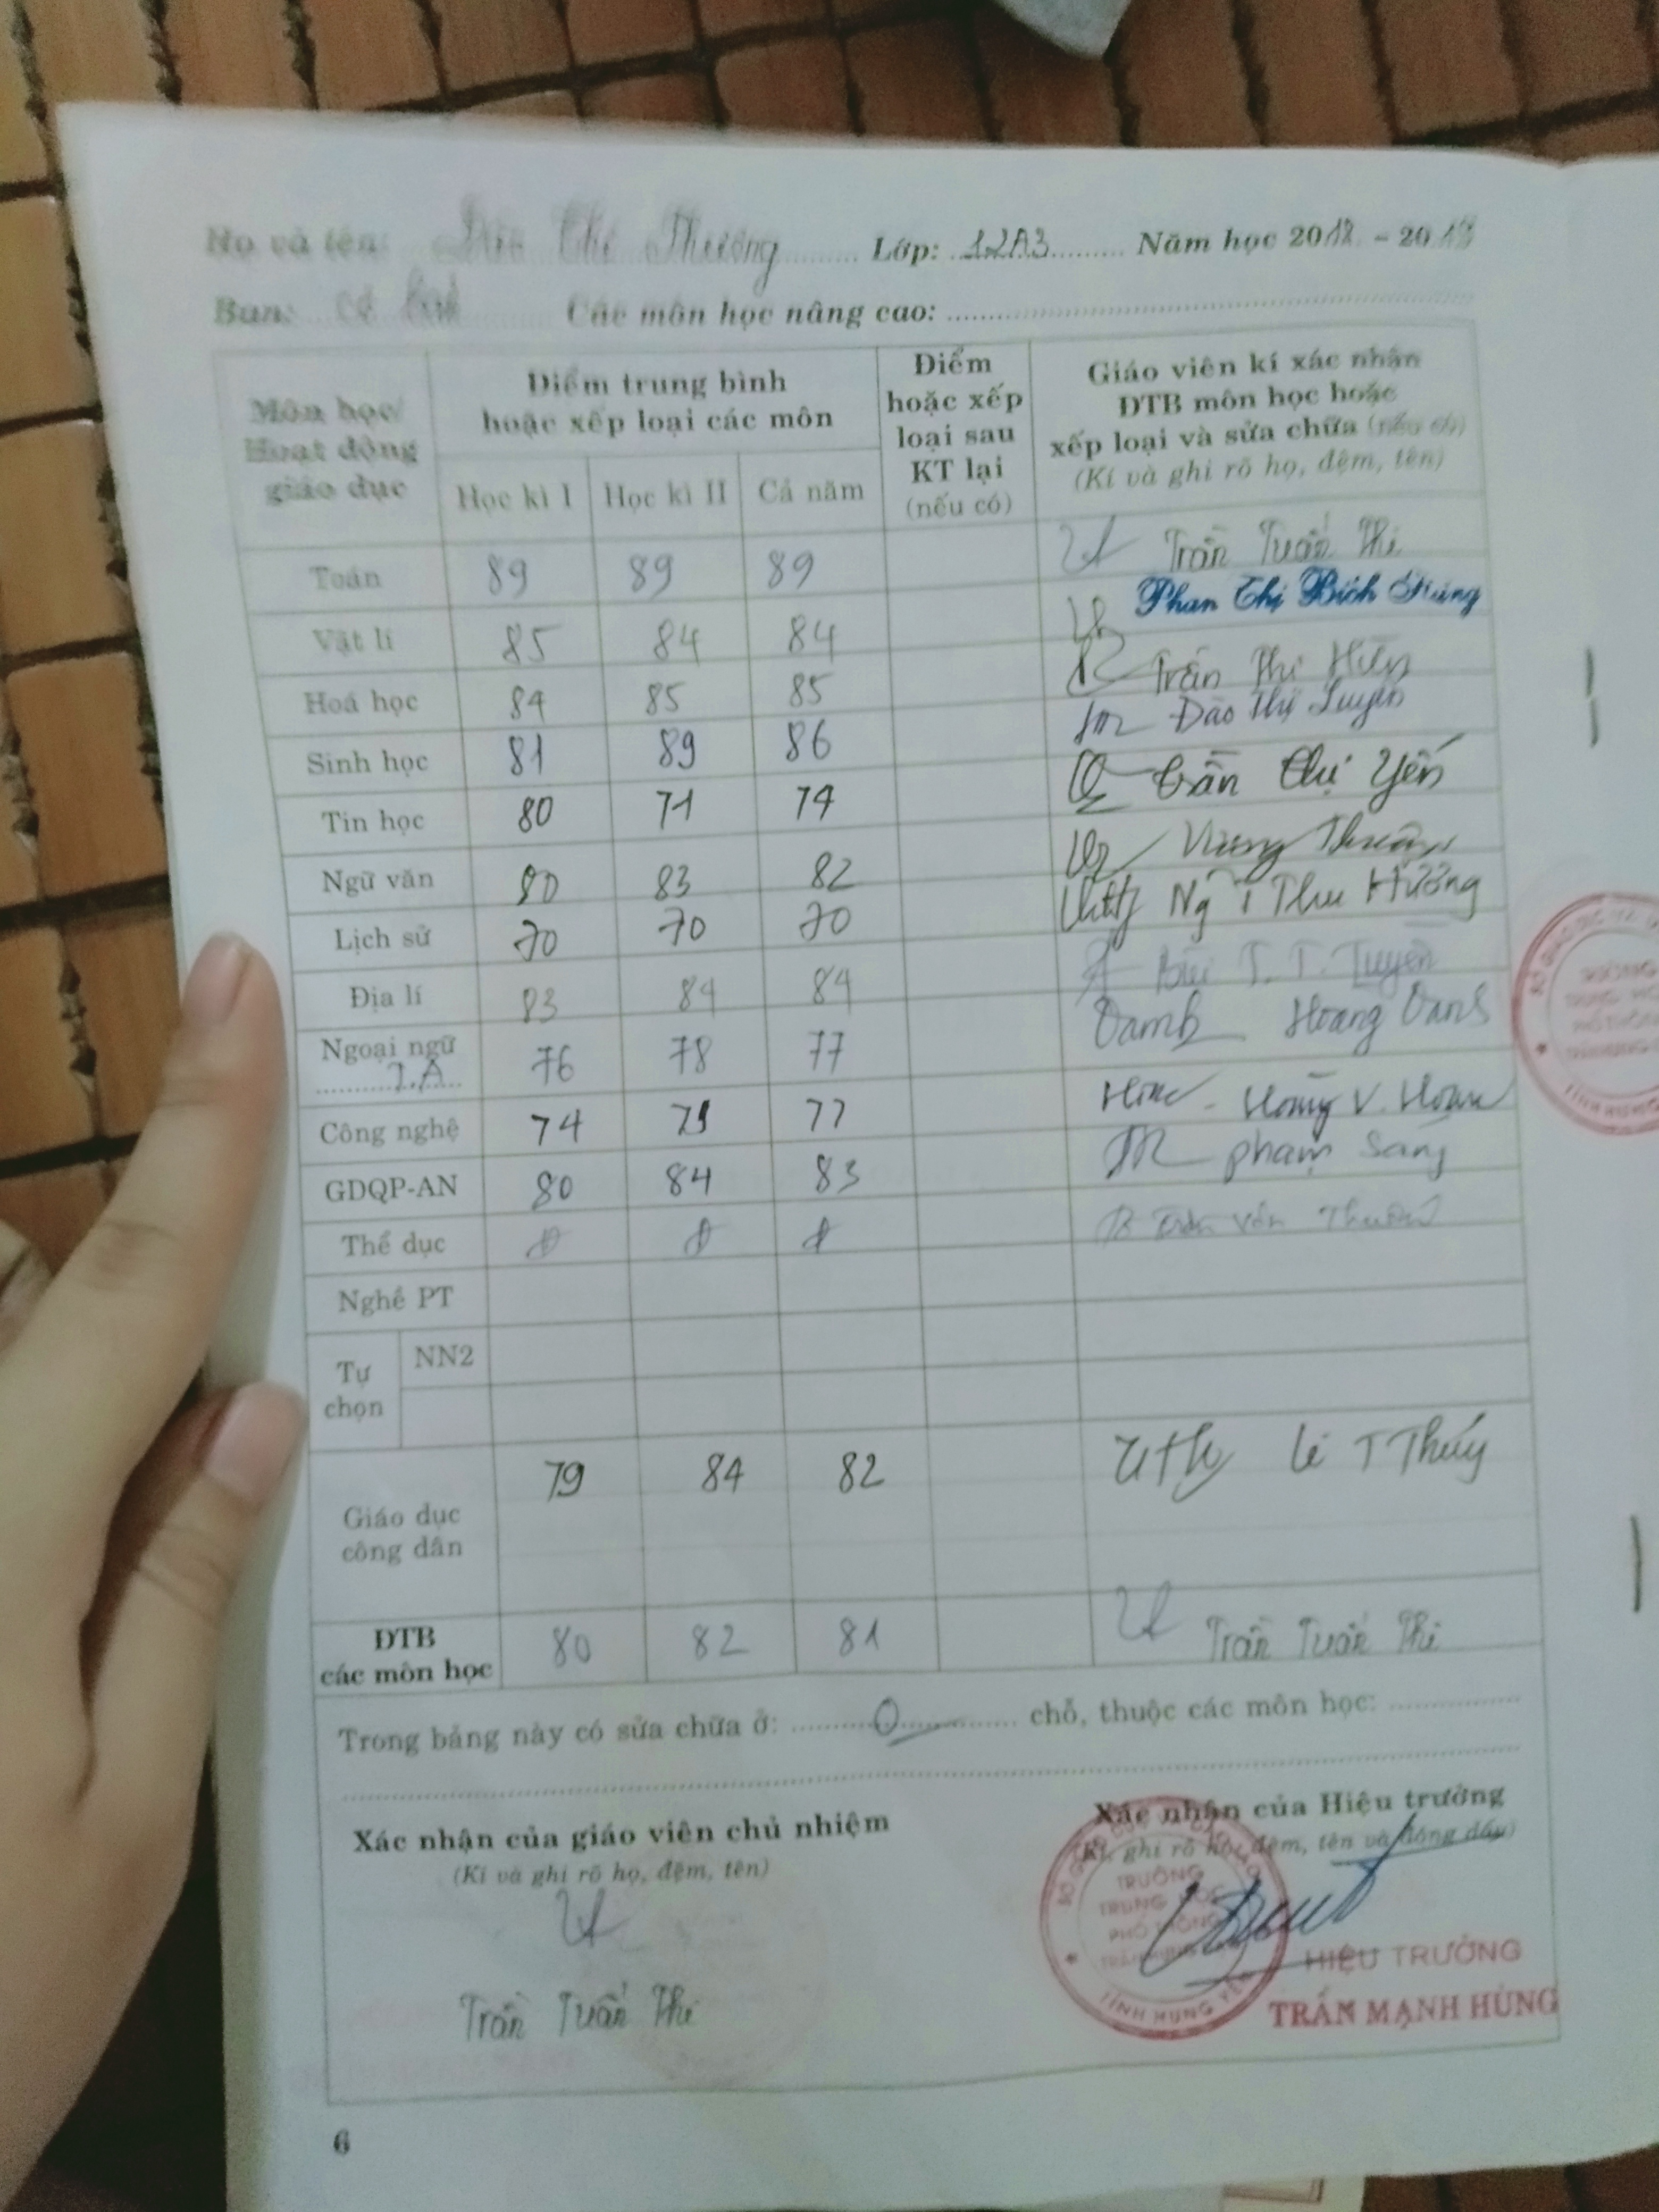 Họ và tên: Thị Thương Lớp: 12A3 Năm học 2018 - 2019
Ban: Cơ bản Các môn học nâng cao:
Môn học/ Hoạt động giáo dục
Điểm trung bình hoặc xếp loại các môn
Học kì I Học kì II Cả năm
Điểm hoặc xếp loại sau KT lại (nếu có)
Giáo viên kí xác nhận ĐTB môn học hoặc xếp loại và sửa chữa (nếu có) (Kí và ghi rõ họ, đệm, tên)
Toán 89 89 89 Trần Tuấn Thi
Vật lí 85 84 84 Phan Thị Bích
Hoá học 84 85 85 Trần Thị Hiền
Sinh học 81 89 86 Đào Thị Luyến
Tin học 80 71 74 Trần Thị Yến
Ngữ văn 80 83 82
Lịch sử 70 70 70 Ng T Thu Hường
Địa lí 83 84 84 Bùi T. T. Tuyền
Ngoại ngữ 76 78 77 Hoàng Oanh
T.A
Công nghệ 74 79 77 Hoàng V. Hoan
GDQP-AN 80 84 83 Phạm Sang
Thể dục Đ Đ Đ Trần Văn
Nghề PT
Tự chọn NN2
Giáo dục công dân 79 84 82 Lê T Thúy
ĐTB các môn học 80 82 81 Trần Tuấn Thi
Trong bảng này có sửa chữa ở: 0 chỗ, thuộc các môn học:
Xác nhận của giáo viên chủ nhiệm
(Kí và ghi rõ họ, đệm, tên)
Trần Tuấn Thi
Xác nhận của Hiệu trưởng
(Kí, ghi rõ họ, đệm, tên và đóng dấu)
TRƯỜNG
TRUNG HỌC
PHỔ THÔNG
TỈNH HƯNG YÊN
HIỆU TRƯỞNG
TRẦN MẠNH HÙNG
6